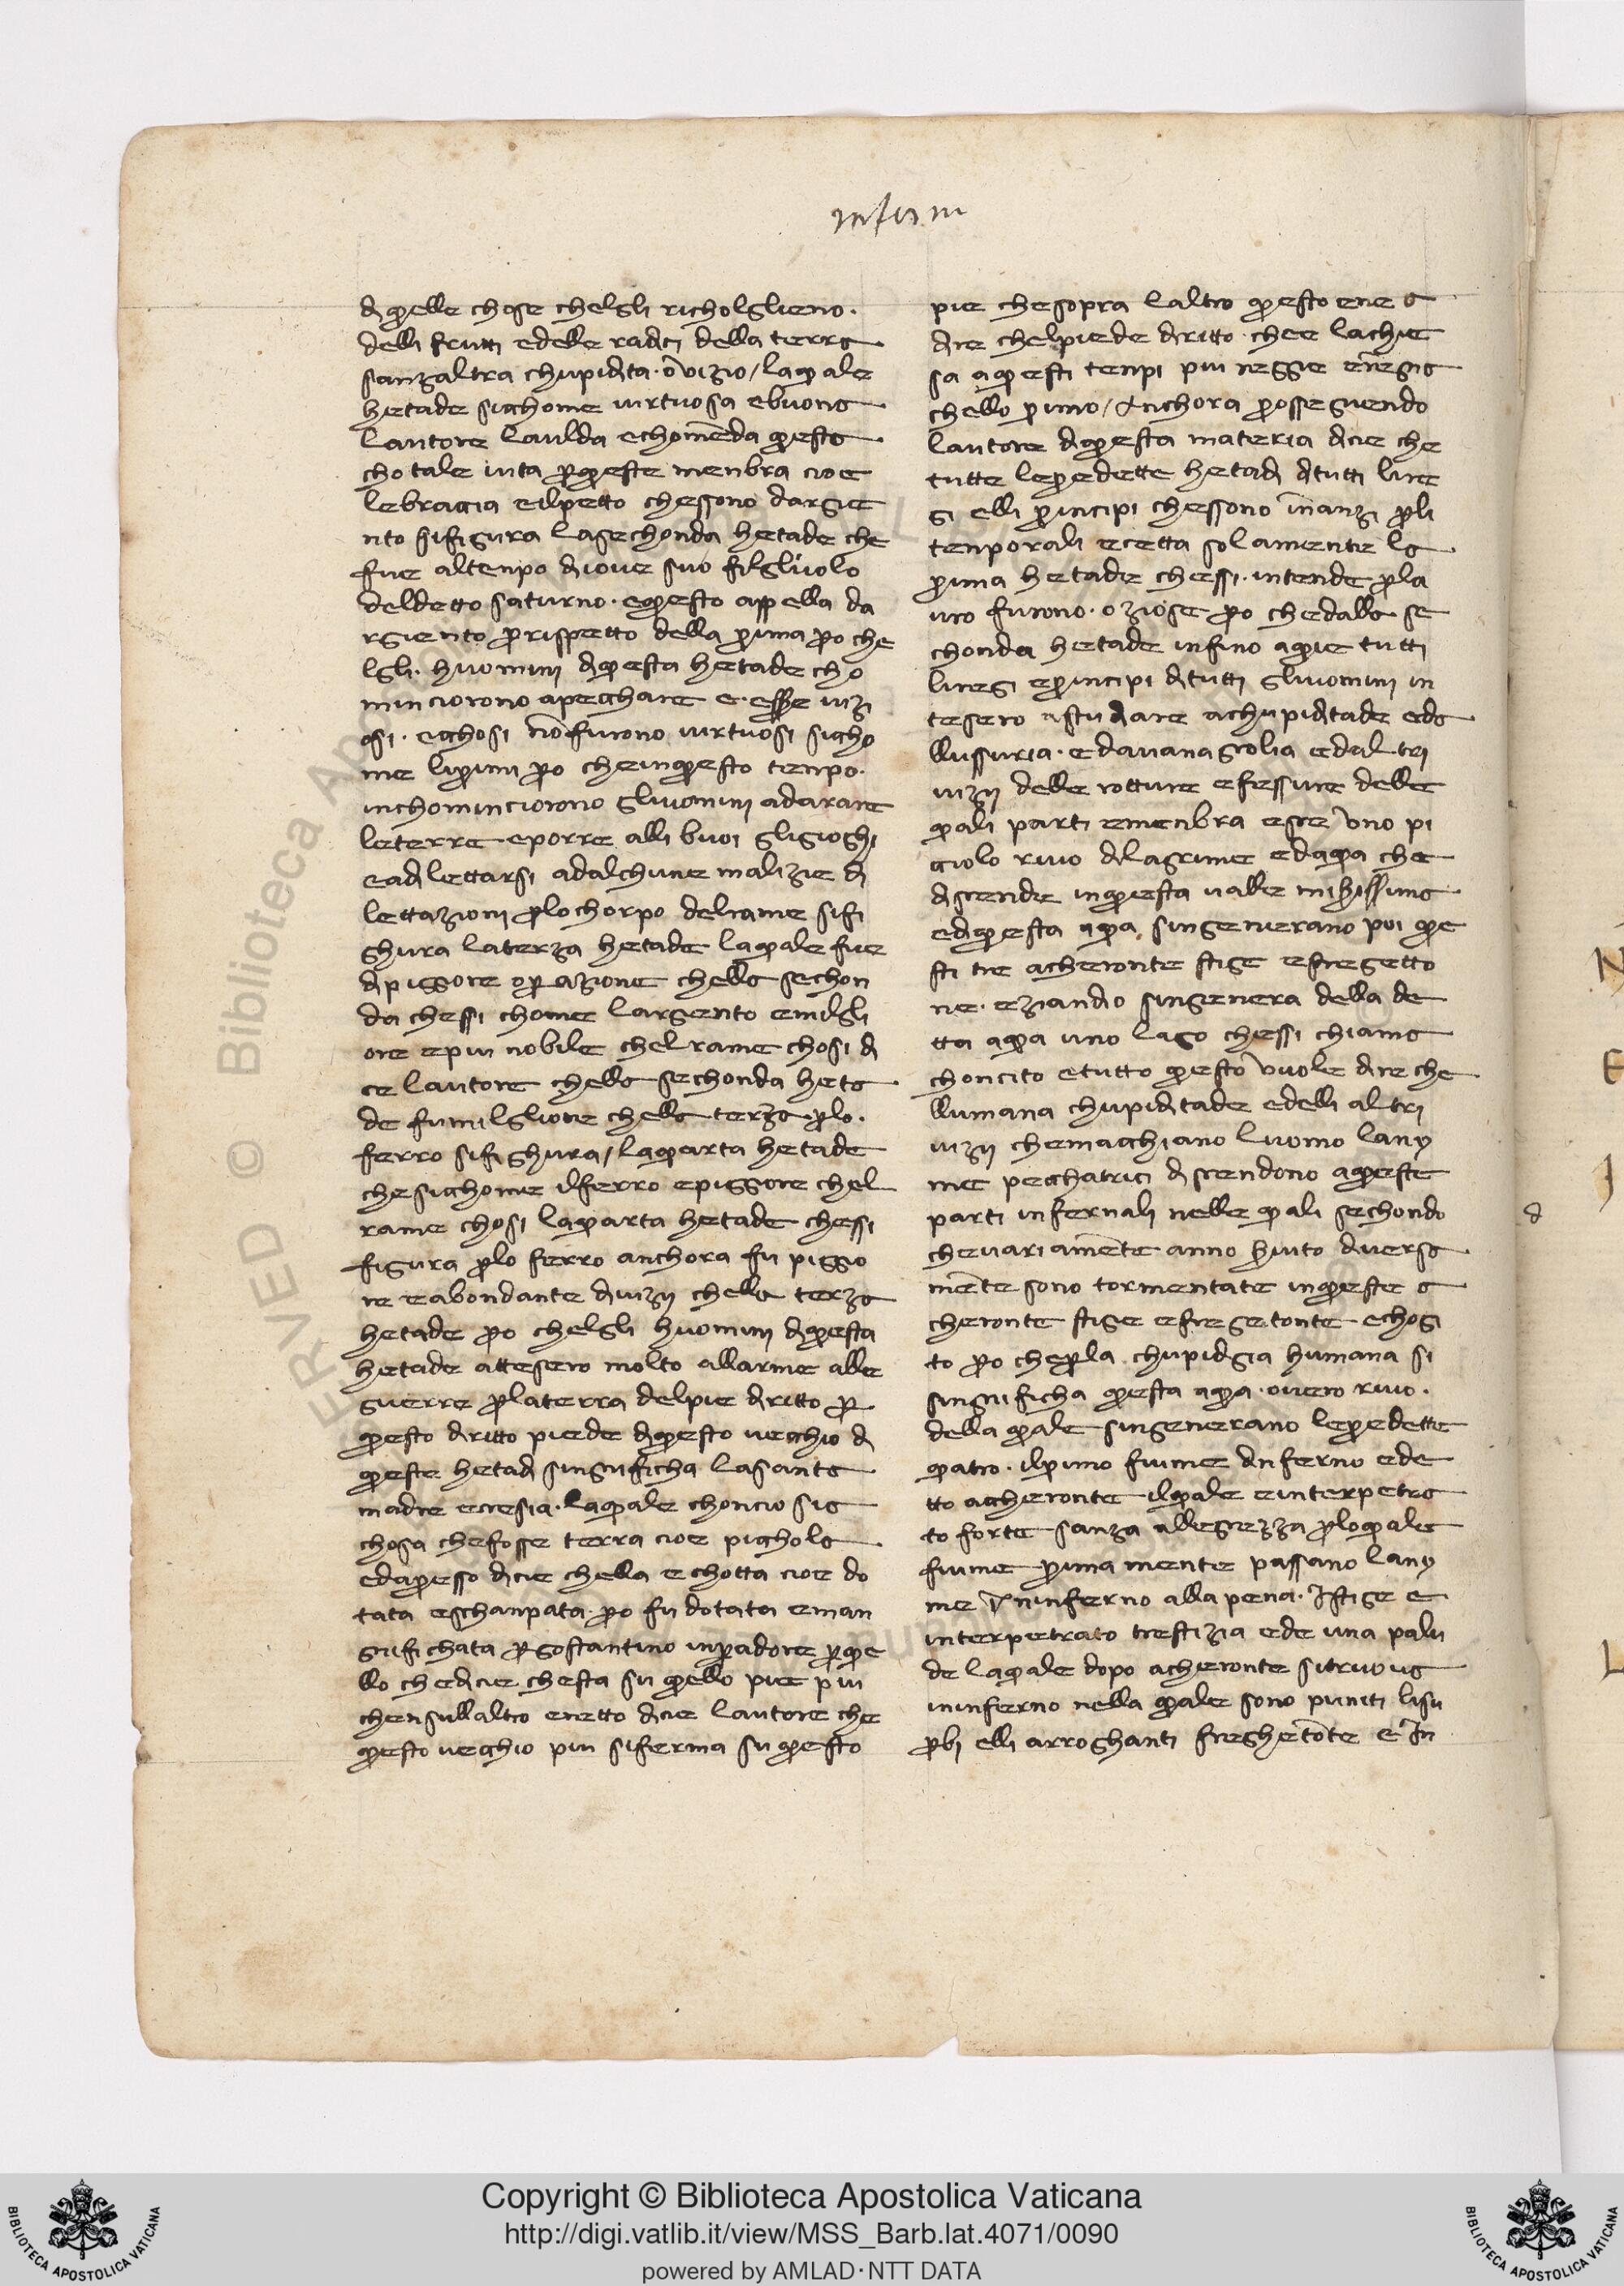 inferni
di quelle chose chelgli richolglieno.
delli frutti edelle radici della terra
sanzaltra chupidita. o vizio / laquale
hetade sicchome virtuosa ebuona
lautore laulda echomenda questa
cho tale vita perqueste menbra cioe
lebraccia eilpetto chessono dargie
nto sifigura lasechonda hetade che
fue altenpo diiove suo filgliuolo
deldetto saturno. equesto appella da
rgiento perrispetto della prima pero che
lgli. huomini diquesta hetade cho
minciorono apecchare e. essere vizi
osi. ecchosi nofurono virtuosi siccho
me liprimi pero cheinquesto tenpo.
inchominciorono gliuomini adarare
leterre eporre alli buoi gligioghi
eadilettarsi adalchune malizie di
lettazioni perlochorpo delrame sifi
ghura laterza hetade laquale fue
dipiggore operazione chella sechon
da chessi chome largento emilgli
ore epiu nobile chelrame chosi di
ce lautore chella sechonda heta
de fumilgliore chella terza. perlo.
ferro sifighura / laquarta hetade
chesicchome ilferro epiggore chel
rame chosi laquarta hetade chessi
figura perlo ferro anchora fu piggio
re eabondante divizii chella terza
hetade pero chelgli huomini diquesta
hetade attesero molto allarme alle
guerre perlaterra delpie diritto per
questo diritto piede diquesto vecchio di
queste hetadi singnificha lasanta
madre ecresia. laquale choncio sia
chosa chefosse terra cioe picchola
edapresso dicie chella e chotta cioe do
tata eschanpata. pero fu dotata eman
gnifichata pergostantino inperadore perque
llo chedicie. chesta su quello pie piu
chensullaltro eretto dicie lautore che
questo vecchio piu siferma su questo
pie chesopra laltro questo ene a
dire chelpiede diritto. chee lachie
sa aquesti tenpi piu reggie erengna
chello primo / Anchora prosseguendo
lautore diquesta materia dicie che
tutte lepredette hetadi ditutti lire
gi elli principi chessono inanzi perli
tenporali ecetta solamente la
prima hetade chessi. intende perla
uro furono. oziose pero chedalla se
chonda hetade infino aquie tutti
liregi eprincipi ditutti gliuomini in
tesero astudiare achupiditade eda
llussuria. edavanagrolia edaltri
vizii delle rotture efessure delle
quali parti emenbra escie uno pi
cciolo rivo dilagrime edaqua che
disciende inquesta valle
edaquesta aqua. singenerano poi que
sti tre acheronte stige efregetto
ne. eziandio singenera della de
tta aqua uno lago chessi chiama
choncito etutto questo vuole dire che
llumana chupiditade edelli altri
vizii chemacchiano luomo lany
me pecchatrici disciendono aqueste
parti infernali nelle quali sechondo
chevariamente anno hiuto diversa
mente sono tormentate inqueste a
cheronte stige efregetonte echogi
to pero cheperla chupidigia humana si
singnificha questa aqua. overo rivo.
della quale singenerano lepredette
quatro. ilprimo fiume dinferno ede
tto accheronte ilquale einterpetra
to forte sanza allegrezza perloquale
fiume primamente passano lany
me ininferno alla pena. Istige e
interpetrato trestizia ede una palu
de laquale dopo acheronte sitruova
ininferno nella quale sono puniti lisu
perbi elli arroghanti freghetonte e in
Copyright © Biblioteca Apostolica Vaticana
http://digi.vatlib.it/view/MSS_Barb.lat.4071/0090
powered by AMLAD·NTT DATA